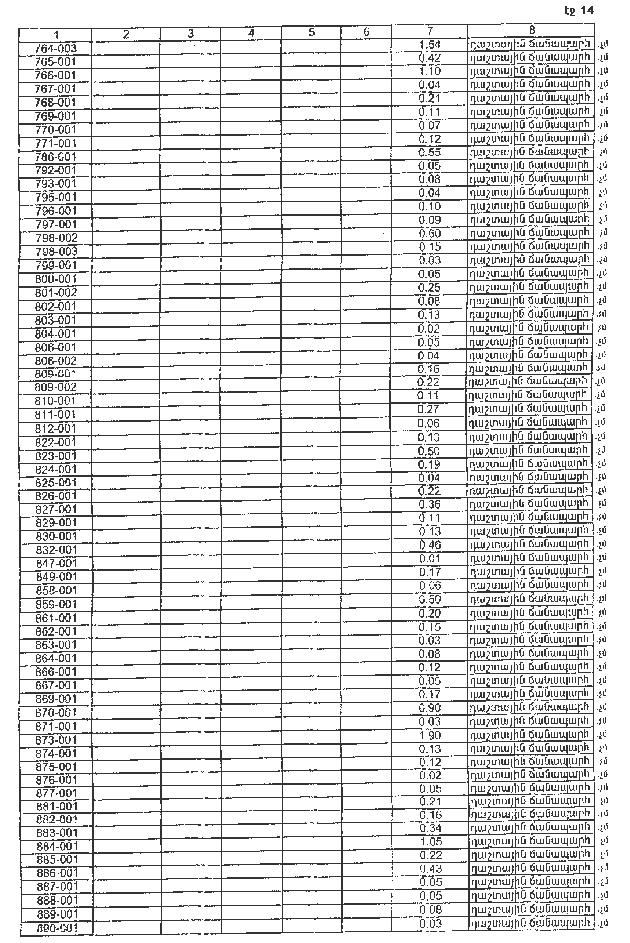 էջ 14
1 2 3 4 5 6 7 8
764-003 1.54 դաշտային ճանապարհ
765-001 0.42 դաշտային ճանապարհ
766-001 1.10 դաշտային ճանապարհ
767-001 0.04 դաշտային ճանապարհ
768-001 0.21 դաշտային ճանապարհ
769-001 0.11 դաշտային ճանապարհ
770-001 0.07 դաշտային ճանապարհ
771-001 0.12 դաշտային ճանապարհ
786-001 0.55 դաշտային ճանապարհ
792-001 0.05 դաշտային ճանապարհ
793-001 0.08 դաշտային ճանապարհ
795-001 0.04 դաշտային ճանապարհ
796-001 0.10 դաշտային ճանապարհ
797-001 0.09 դաշտային ճանապարհ
798-002 0.60 դաշտային ճանապարհ
798-003 0.15 դաշտային ճանապարհ
799-001 0.03 դաշտային ճանապարհ
800-001 0.05 դաշտային ճանապարհ
801-002 0.25 դաշտային ճանապարհ
802-001 0.08 դաշտային ճանապարհ
803-001 0.13 դաշտային ճանապարհ
804-001 0.02 դաշտային ճանապարհ
806-001 0.05 դաշտային ճանապարհ
808-002 0.04 դաշտային ճանապարհ
809-001 0.16 դաշտային ճանապարհ
809-002 0.22 դաշտային ճանապարհ
810-001 0.11 դաշտային ճանապարհ
811-001 0.27 դաշտային ճանապարհ
812-001 0.06 դաշտային ճանապարհ
822-001 0.13 դաշտային ճանապարհ
823-001 0.50 դաշտային ճանապարհ
824-001 0.19 դաշտային ճանապարհ
825-001 0.04 դաշտային ճանապարհ
826-001 0.22 դաշտային ճանապարհ
827-001 0.36 դաշտային ճանապարհ
829-001 0.11 դաշտային ճանապարհ
830-001 0.13 դաշտային ճանապարհ
832-001 0.46 դաշտային ճանապարհ
847-001 0.01 դաշտային ճանապարհ
849-001 0.17 դաշտային ճանապարհ
858-001 0.06 դաշտային ճանապարհ
859-001 0.50 դաշտային ճանապարհ
861-001 0.20 դաշտային ճանապարհ
862-001 0.15 դաշտային ճանապարհ
863-001 0.03 դաշտային ճանապարհ
864-001 0.08 դաշտային ճանապարհ
866-001 0.12 դաշտային ճանապարհ
867-001 0.05 դաշտային ճանապարհ
869-001 0.17 դաշտային ճանապարհ
870-001 0.90 դաշտային ճանապարհ
871-001 0.03 դաշտային ճանապարհ
873-001 1.90 դաշտային ճանապարհ
874-001 0.13 դաշտային ճանապարհ
875-001 0.12 դաշտային ճանապարհ
876-001 0.02 դաշտային ճանապարհ
877-001 0.05 դաշտային ճանապարհ
881-001 0.21 դաշտային ճանապարհ
882-001 0.16 դաշտային ճանապարհ
883-001 0.34 դաշտային ճանապարհ
884-001 1.05 դաշտային ճանապարհ
885-001 0.22 դաշտային ճանապարհ
886-001 0.43 դաշտային ճանապարհ
887-001 0.05 դաշտային ճանապարհ
888-001 0.05 դաշտային ճանապարհ
889-001 0.08 դաշտային ճանապարհ
890-001 0.03 դաշտային ճանապարհ